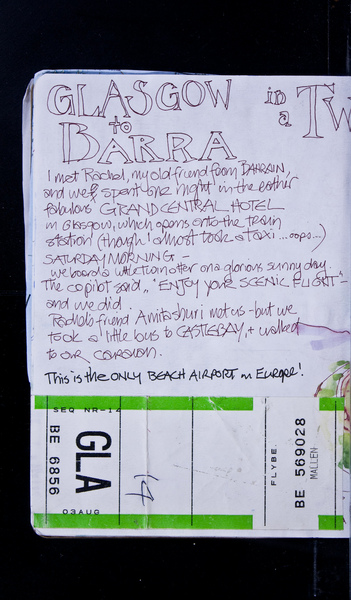 GLASGOW in a TW
to
BARRA
I met Rachel, my old friend from BAHRAIN,
and we spent one night in the rather
fabulous GRAND CENTRAL HOTEL
in Glasgow, which opens onto the train
station (though I almost took a taxi ... oops...)
SATURDAY MORNING -
we board a little twin otter on a glorious sunny day.
The copilot said, "ENJOY YOUR SCENIC FLIGHT" -
and we did.
Rachel's friend met us - but we
took a little bus to CASTLEBAY, + walked
to our caravan.
This is the ONLY BEACH AIRPORT in Europe!
SEQ NR-14
BE 6856
GLA
03AUG
14
FLYBE.
BE 569028
MALLEN